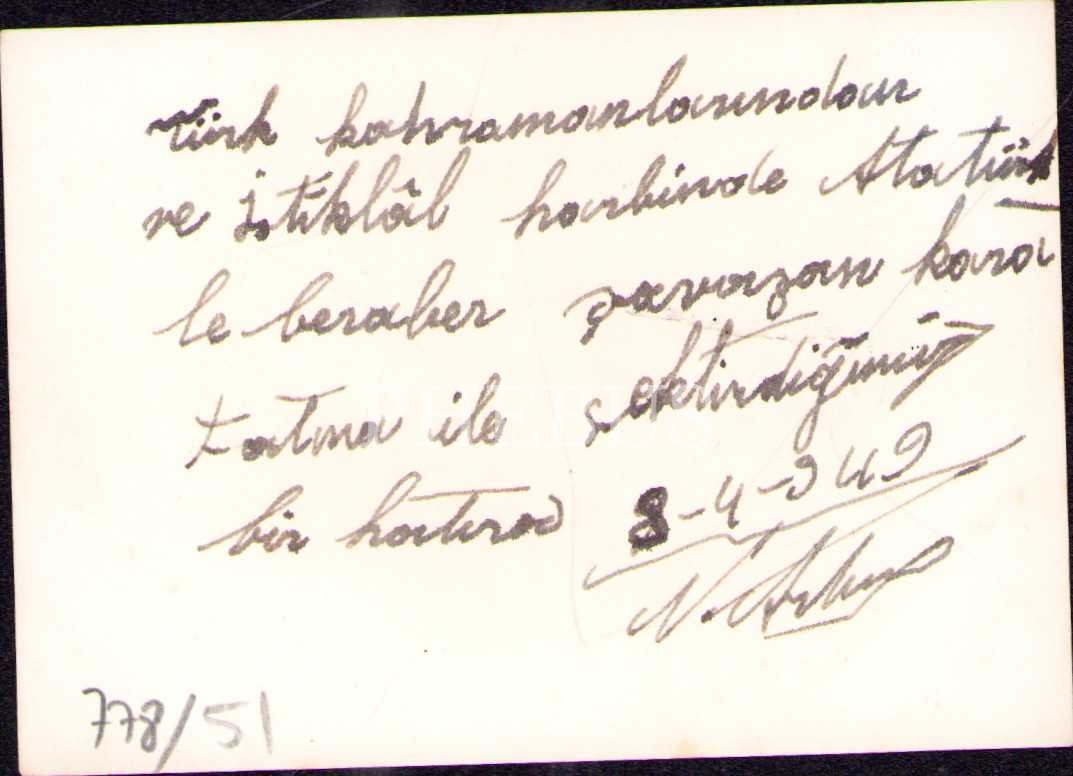 Türk kahramanlarından
ve İstiklâl harbinde Atatürk
le beraber şavaşan kara
Fatma ile çektirdiğimiz
bir hatıra 8-4-949
N.
778/51
PHEBUS